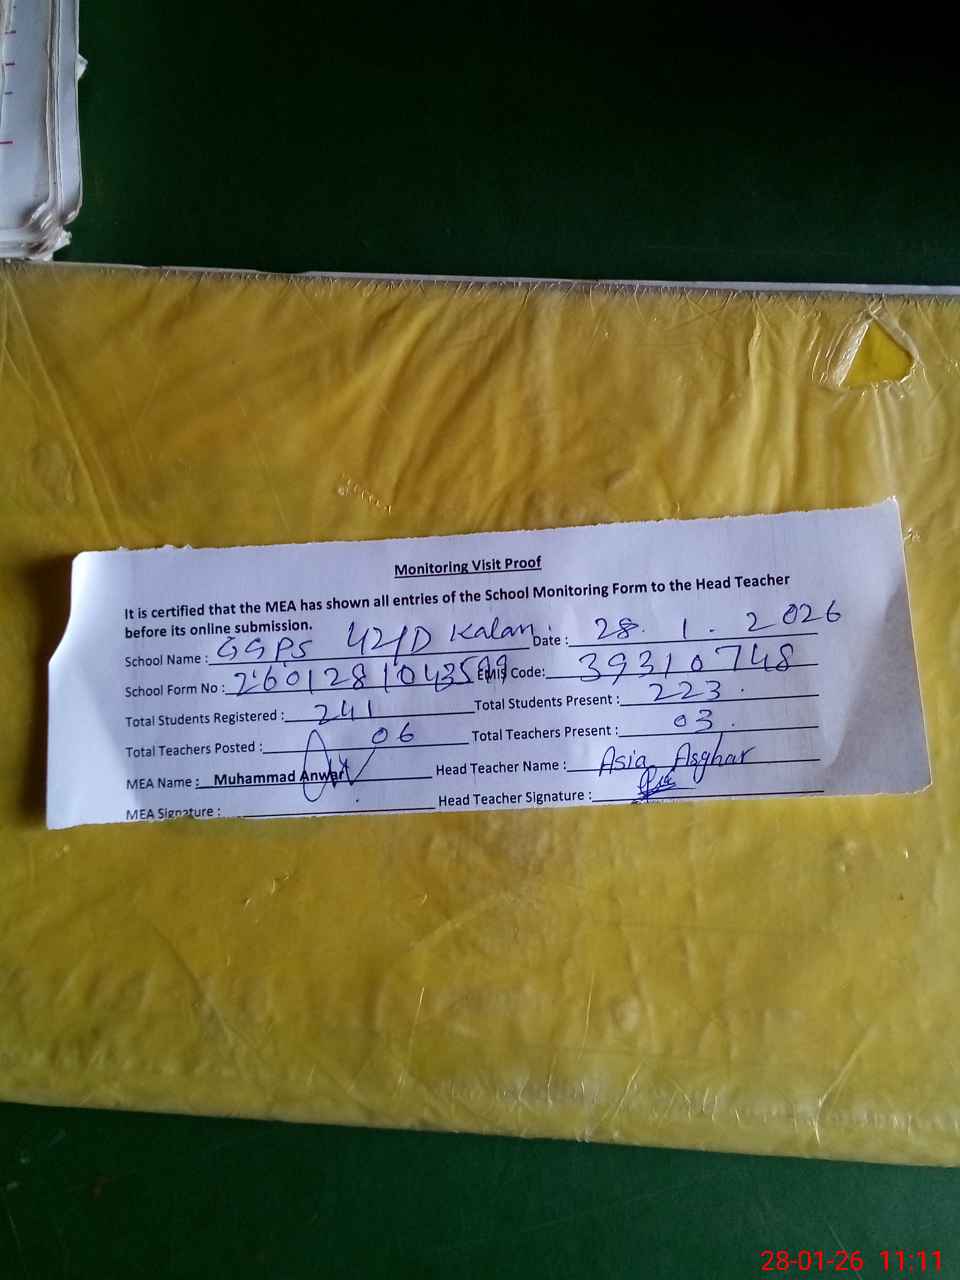 Monitoring Visit Proof
It is certified that the MEA has shown all entries of the School Monitoring Form to the Head Teacher
before its online submission.
School Name : GGPS 42/D Kalan. Date : 28. 1. 2026
School Form No : EMIS Code: 39310748
Total Students Registered : 241 Total Students Present : 223.
Total Teachers Posted : 06 Total Teachers Present : 03.
MEA Name : Muhammad Anwar Head Teacher Name : Asia Asghar
MEA Signature : Head Teacher Signature :
28-01-26 11:11